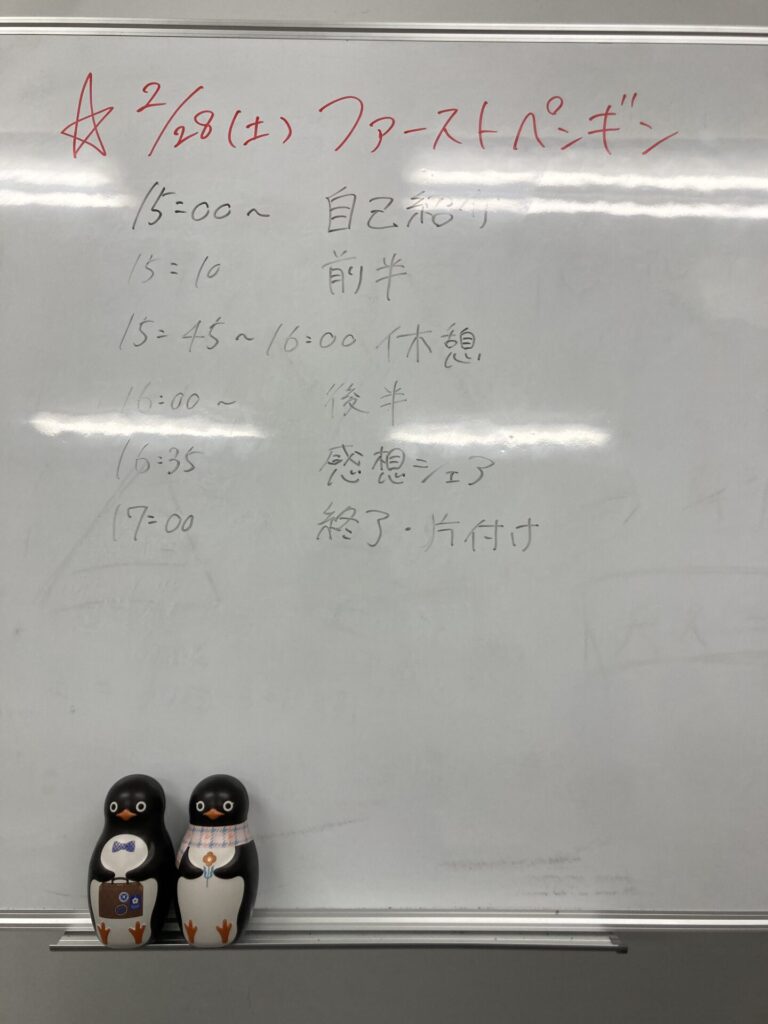 ☆ 2/28(土) ファーストペンギン
15:00～ 自己紹介
15:10 前半
15:45～16:00 休憩
16:00～ 後半
16:35 感想シェア
17:00 終了・片付け